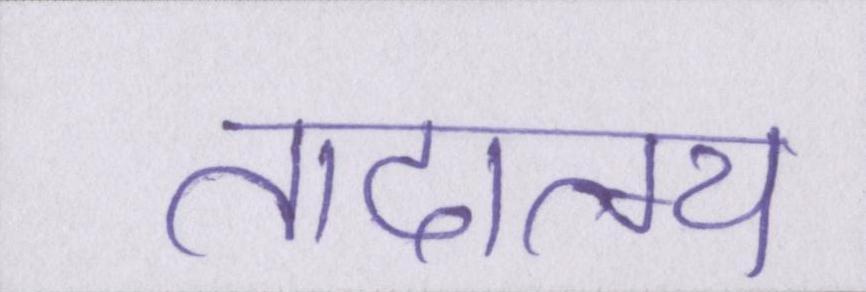 तादात्म्य